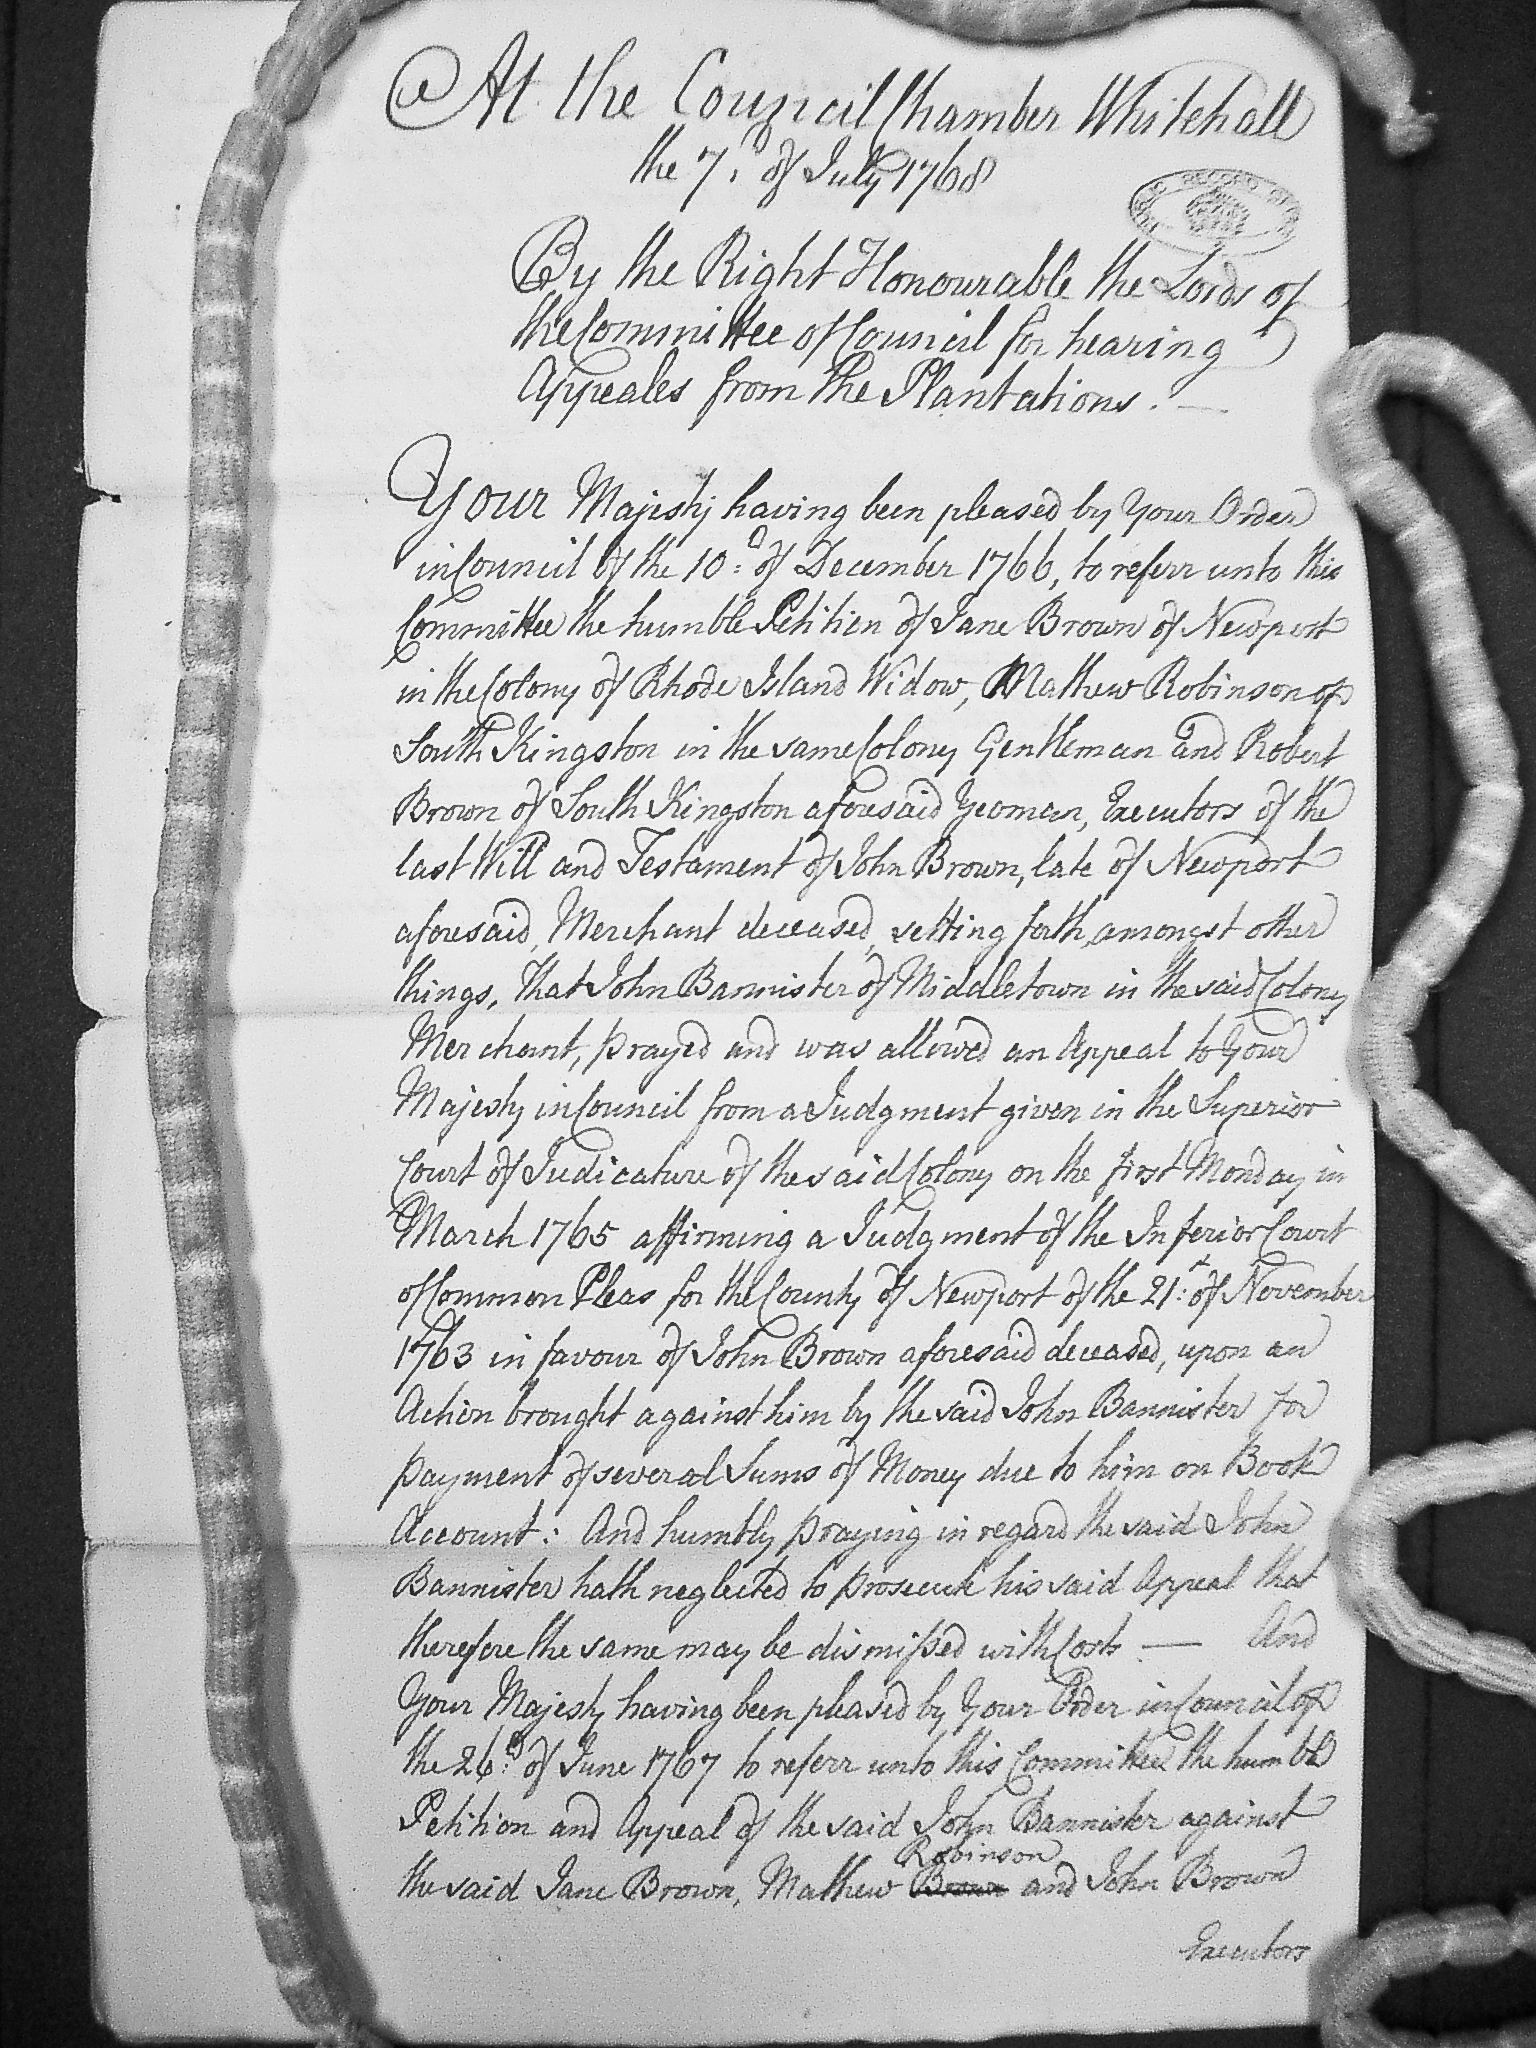 At the Council Chamber Whitehall
the 7.th of July 1768
PUBLIC RECORD OFFICE
By the Right Honourable the Lords of
the Committee of Council for hearing
Appeales from the Plantations. —
Your Majesty having been pleased by Your Order
in Council of the 10:th of December 1766, to referr unto this
Committee the humble Petition of Jane Brown of Newport
in the Colony of Rhode Island Widow, Mathew Robinson of
South Kingston in the same Colony Gentleman and Robert
Brown of South Kingston aforesaid Yeoman, Executors of the
last Will and Testament of John Brown, late of Newport
aforesaid, Merchant deceased, setting forth, amongst other
things, That John Bannister of Middletown in the said Colony
Merchant, prayed and was allowed an Appeal to Your
Majesty in Council from a Judgment given in the Superior
Court of Judicature of the said Colony on the first Monday in
March 1765 affirming a Judgment of the Inferior Court
of Common Pleas for the County of Newport of the 21:st of November
1763 in favour of John Brown aforesaid deceased, upon an
Action brought against him by the said John Bannister for
payment of several Sums of Money due to him on Book
Account: And humbly praying in regard the said John
Bannister hath neglected to prosecute his said Appeal that
therefore the same may be dismissed with Costs — And
Your Majesty having been pleased by Your Order in Council of
the 26:th of June 1767 to referr unto this Committee the humble
Petition and Appeal of the said John Bannister against
Robinson
the said Jane Brown, Mathew Brown and John Brown
Executors